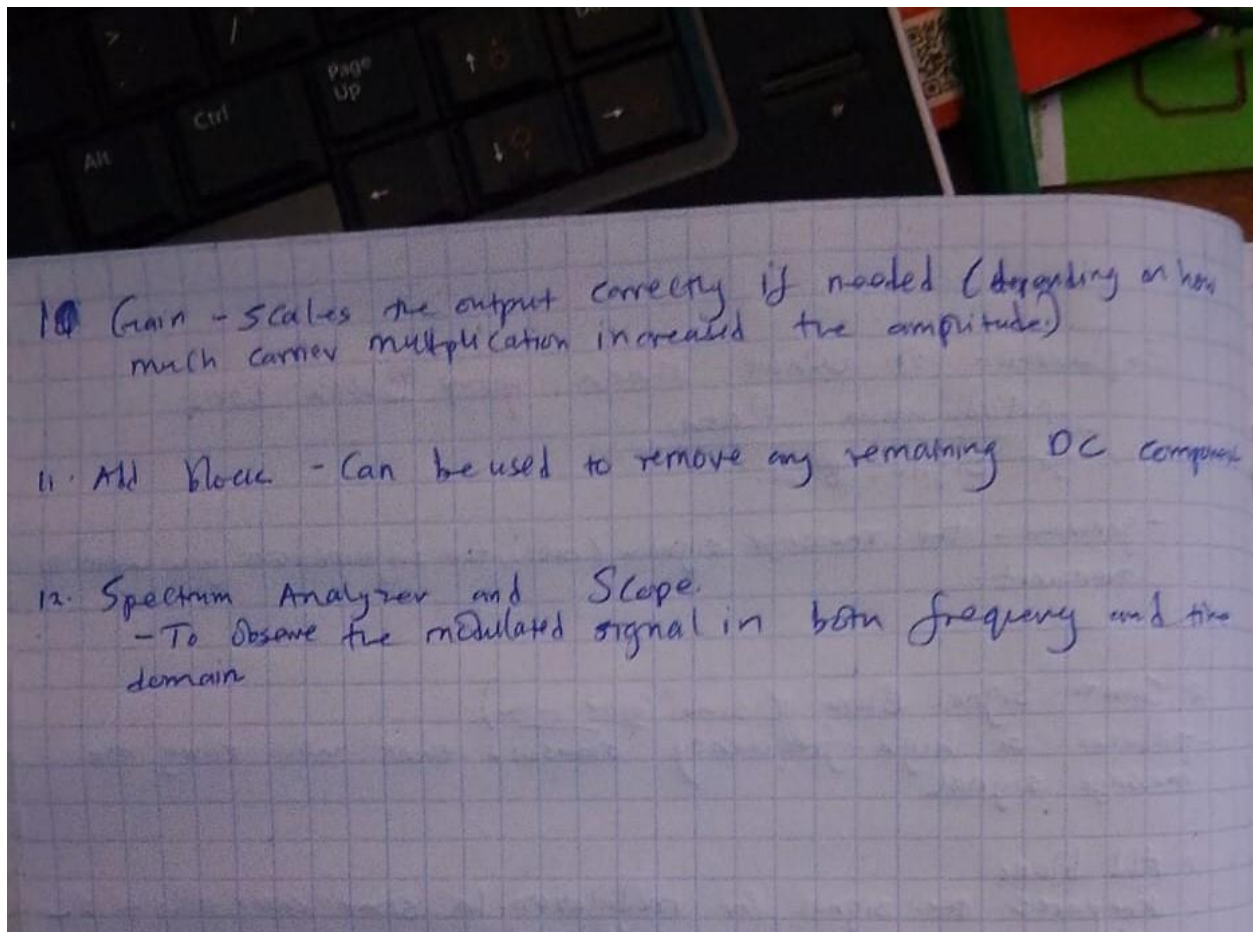 >
/
Page
Up
Ctrl
Alt
↑
↓
→
←
10 Gain - Scales the output correctly if needed (depending on how
much carrier multiplication increased the amplitude.)
11. Add block - Can be used to remove any remaining DC component
12. Spectrum Analyzer and Scope.
- To Observe the modulated signal in both frequency and time
domain